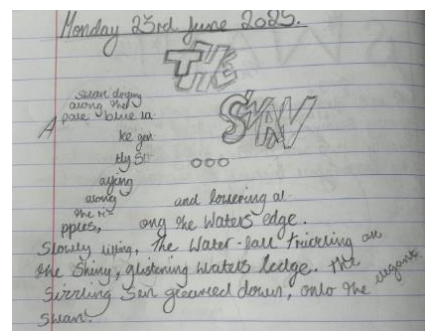 Monday 23rd June 2025.
THE
SWAN
swan
along the
A pale blue la
ke gen
tly s
aying
along
the ri
pples,
and lowering al
ong the waters edge.
Slowly lifting, the water-fall trickling on
the shiny, glistening waters ledge. the
Sizzling sun gleamed down, onto the elegant
swan.